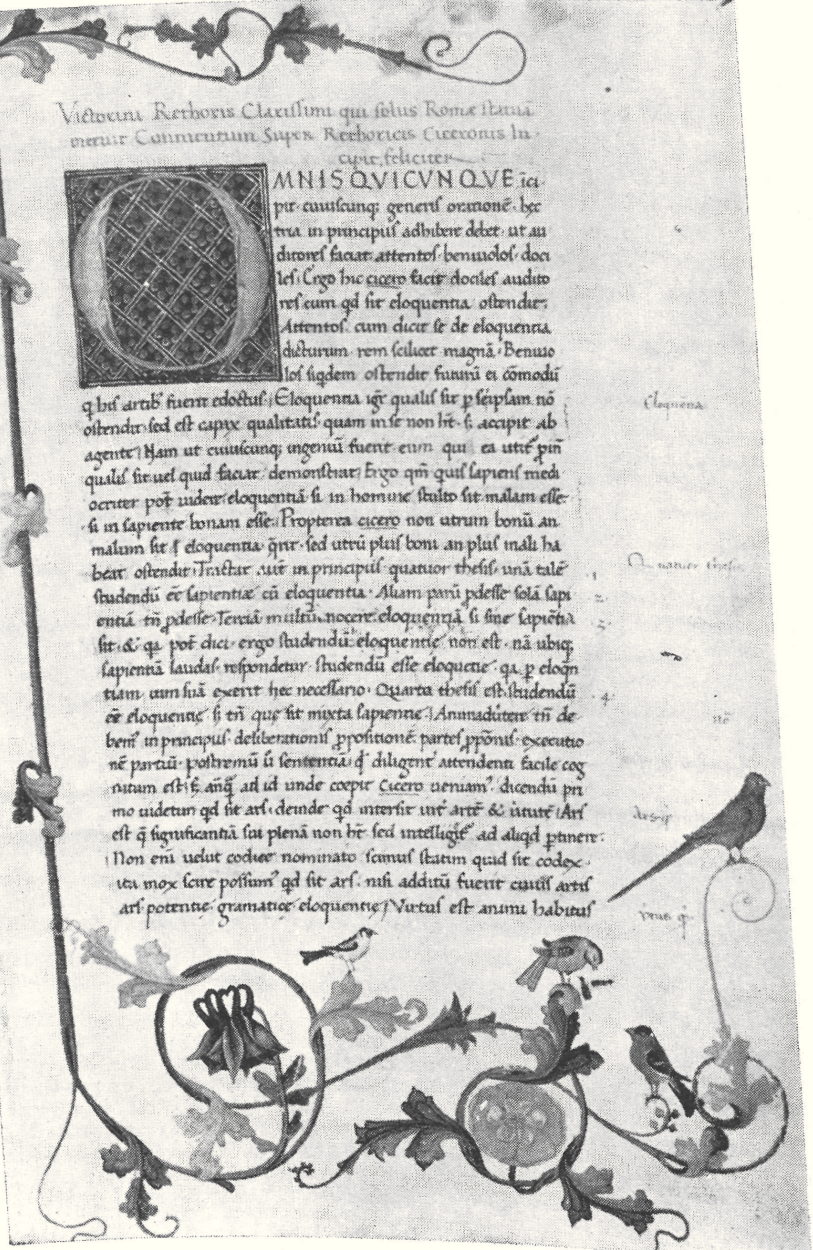 Victorini Rethoris Clarissimi qui solus Romæ statuā
meruit Commentum Super Rethoricis Ciceronis In-
cipit feliciter
OMNIS QVICVNQVE īci
pit cuiuscunq; generis orationē hec
tria in principiis adhibere debet ut au
ditores faciat attentos beniuolos doci
les: Ergo hic cicero facit dociles audito
res cum qd sit eloquentia ostendit:
Attentos cum dicit se de eloquentia
dicturum rem scilicet magnā. Beniuo
los siqdem ostendit futurū ei cōmodū
q his artib fuerit edoctus: Eloquentia igr qualis sit p seipsam nō
ostendit sed est capax qualitatis quam in se non ht. s; accipit ab
agente: Nam ut cuiuscunq; ingeniū fuerit eum qui ea utit
qualis sit uel quid faciat demonstrat: Ergo qm quis sapiens medi
ocriter pot uidere eloquentiā si in homine stulto sit malam esse:
si in sapiente bonam esse: Propterea cicero non utrum bonū an
malum sit eloquentia qrit. sed utrū plus boni an plus mali ha
beat ostendit: Tractat aut in principiis quatuor thesis. unā talē
studendū ēē sapientiæ cū eloquentia. Aliam parū pdesse solā sapi
entiā tn pdesse. Terciā multū nocere eloquentiā si sine sapiētia
sit. & qa pot dici ergo studendū eloquentie non est. nā ubiq;
sapientiā laudas respondetur studendū esse eloquētie qa p eloqn
tiam uim suā exerit hec necessario. Quarta thesis est studendū
ēē eloquentie s; tn que sit mixta sapientie: Animadutere tn de
bem in principiis deliberationis ppositionē. partes pponis. executio
nē partiū. postremū sententiā qd diligent attendenti facile cog
nitum est: ad id unde coepit Cicero ueniam. dicendū pri
mo uidetur qd sit ars. deinde qd intersit int artē & uirtutē: Ars
est q significantiā sui plenā non ht sed intelligit ad aliqd ptinere:
Non eni uelut codice nominato scimus statim quid sit codex.
ita mox scire possum qd sit ars. nisi additū fuerit cuius artis
ars potentie. gramatice eloquentie: Virtus est animi habitus
Eloquentia
Quatuor thesis
1
2
3
4